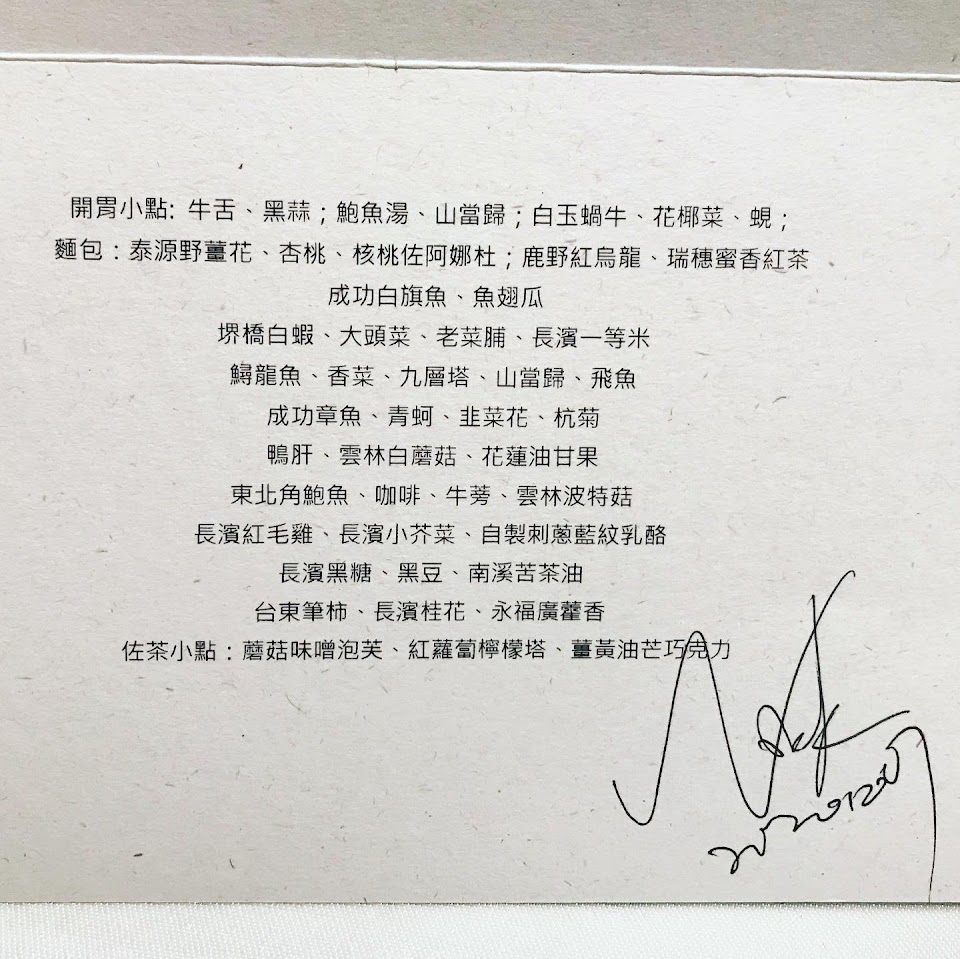 開胃小點: 牛舌、黑蒜；鮑魚湯、山當歸；白玉蝸牛、花椰菜、蜆；
麵包：泰源野薑花、杏桃、核桃佐阿娜杜；鹿野紅烏龍、瑞穗蜜香紅茶
成功白旗魚、魚翅瓜
堺橋白蝦、大頭菜、老菜脯、長濱一等米
鱘龍魚、香菜、九層塔、山當歸、飛魚
成功章魚、青蚵、韭菜花、杭菊
鴨肝、雲林白蘑菇、花蓮油甘果
東北角鮑魚、咖啡、牛蒡、雲林波特菇
長濱紅毛雞、長濱小芥菜、自製刺蔥藍紋乳酪
長濱黑糖、黑豆、南溪苦茶油
台東筆柿、長濱桂花、永福廣藿香
佐茶小點：蘑菇味噌泡芙、紅蘿蔔檸檬塔、薑黃油芒巧克力